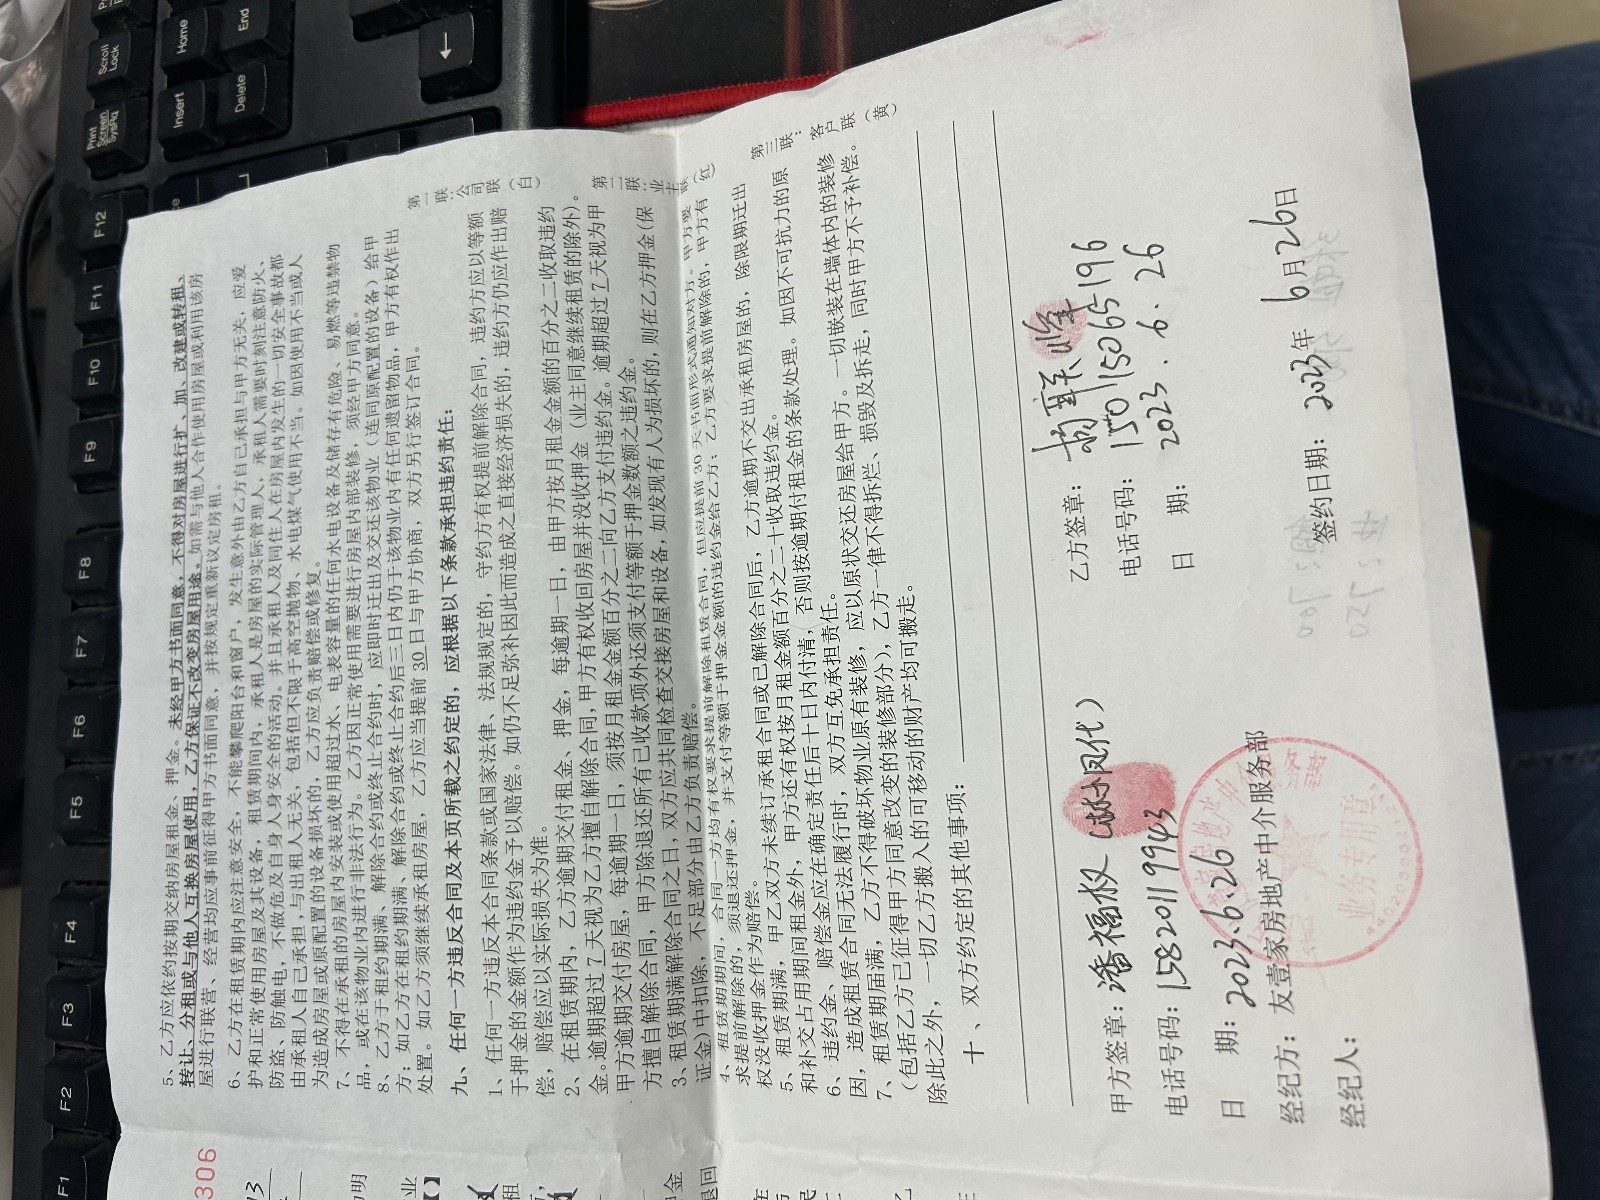 5、乙方应依约按期交纳房屋租金、押金。未经甲方书面同意，不得对房屋进行扩、加、改建或转租、
转让、分租或与他人互换房屋使用，乙方保证不改变房屋用途。如需与他人合作使用房屋或利用该房
屋进行联营、经营均应事前征得甲方书面同意，并按规定重新议定房租。
6、乙方在租赁期内应注意安全，不能攀爬阳台和窗户，发生意外由乙方自己承担与甲方无关，应爱
护和正常使用房屋及其设备，租赁期间内，承租人是房屋的实际管理人，承租人需要时刻注意防火、
防盗、防触电，不做危及自身人身安全的活动。并且承租人及同住人在房屋内发生的一切安全事故都
由承租人自己承担，与出租人无关，包括但不限于高空抛物、水电煤气使用不当。如因使用不当或人
为造成房屋或原配置的设备损坏的，乙方应负责赔偿或修复。
7、不得在承租的房屋内安装或使用超过水、电表容量的任何水电设备及储存有危险、易燃等违禁物
品，或在该物业内进行非法行为。乙方因正常使用需要进行房屋内部装修，须经甲方同意。
8、乙方于租约期满、解除合约或终止合约时，应即时迁出及交还该物业（连同原配置的设备）给甲
方；如乙方在租约期满、解除合约或终止合约后三日内仍于该物业内有任何遗留物品，甲方有权作出
处置。如乙方须继续承租房屋，乙方应当提前 30 日与甲方协商，双方另行签订合同。
九、任何一方违反合同及本页所载之约定的，应根据以下条款承担违约责任：
1、任何一方违反本合同条款或国家法律、法规规定的，守约方有权提前解除合同，违约方应以等额
于押金的金额作为违约金予以赔偿。如仍不足弥补因此而造成之直接经济损失的，违约方仍应作出赔
偿，赔偿应以实际损失为准。
2、在租赁期内，乙方逾期交付租金、押金，每逾期一日，由甲方按月租金金额的百分之二收取违约
金。逾期超过 7 天视为乙方擅自解除合同，甲方有权收回房屋并没收押金（业主同意继续租赁的除外）。
甲方逾期交付房屋，每逾期一日，须按月租金金额百分之二向乙方支付违约金。逾期超过 7 天视为甲
方擅自解除合同，甲方除退还所有已收款项外还须支付等额于押金数额之违约金。
3、租赁期满解除合同之日，双方应共同检查交接房屋和设备，如发现有人为损坏的，则在乙方押金（保
证金）中扣除，不足部分由乙方负责赔偿。
4、租赁期期间，合同一方均有权要求提前解除租赁合同，但应提前 30 天书面形式通知对方。甲方要
求提前解除的，须退还押金，并支付等额于押金金额的违约金给乙方；乙方要求提前解除的，甲方有
权没收押金作为赔偿。
5、租赁期满，甲乙双方未续订承租合同或已解除合同后，乙方逾期不交出承租房屋的，除限期迁出
和补交占用期间租金外，甲方还有权按月租金额百分之二十收取违约金。
6、违约金、赔偿金应在确定责任后十日内付清，否则按逾期付租金的条款处理。如因不可抗力的原
因，造成租赁合同无法履行时，双方互免承担责任。
7、租赁期届满，乙方不得破坏物业原有装修，应以原状交还房屋给甲方。一切嵌装在墙体内的装修
（包括乙方已征得甲方同意改变的装修部分），乙方一律不得拆烂、损毁及拆走，同时甲方不予补偿。
除此之外，一切乙方搬入的可移动的财产均可搬走。
十、双方约定的其他事项：
第一联：公司联（白）
第二联：业主联（红）
第三联：客户联（黄）
甲方签章：潘福权（林凤代）
电话号码：15820119943
日 期：2023.6.26
经纪方：友壹家房地产中介服务部
经纪人：
乙方签章：
电话号码：15015065196
日 期：2023.6.26
签约日期：2023年 6月26日
业务专用章
306